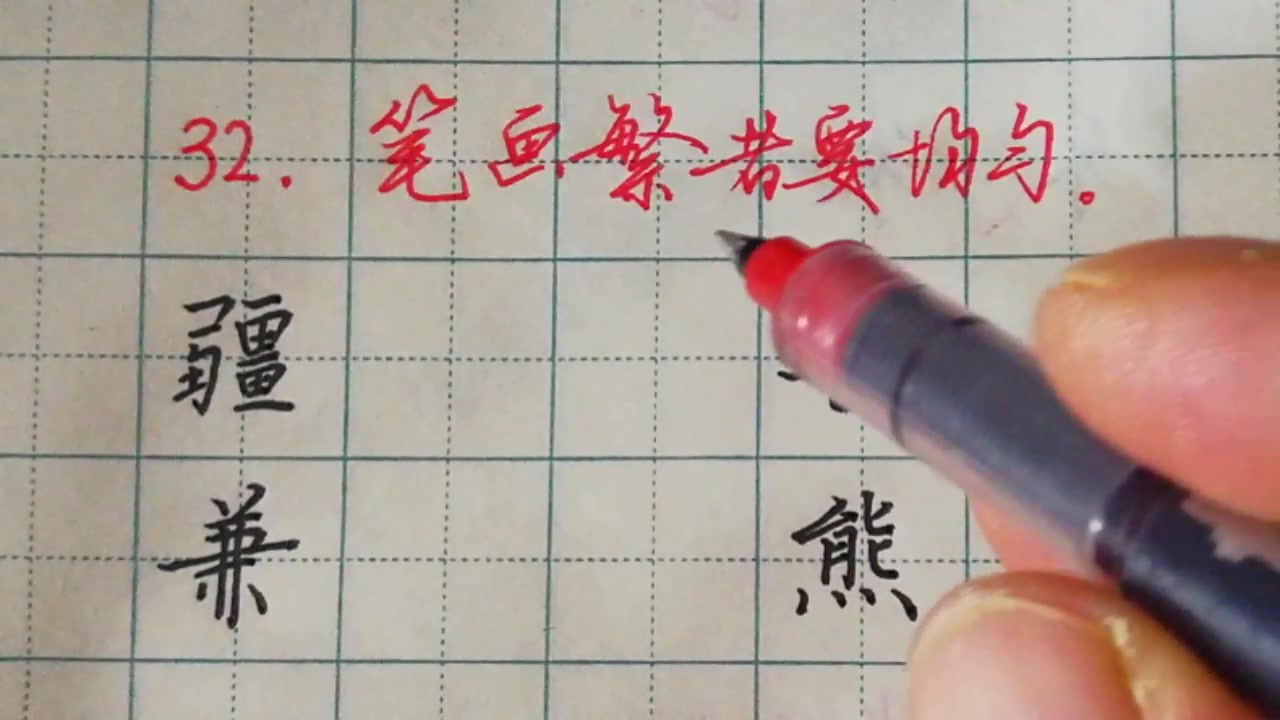 32. 笔画繁者要均匀。
疆
兼 熊